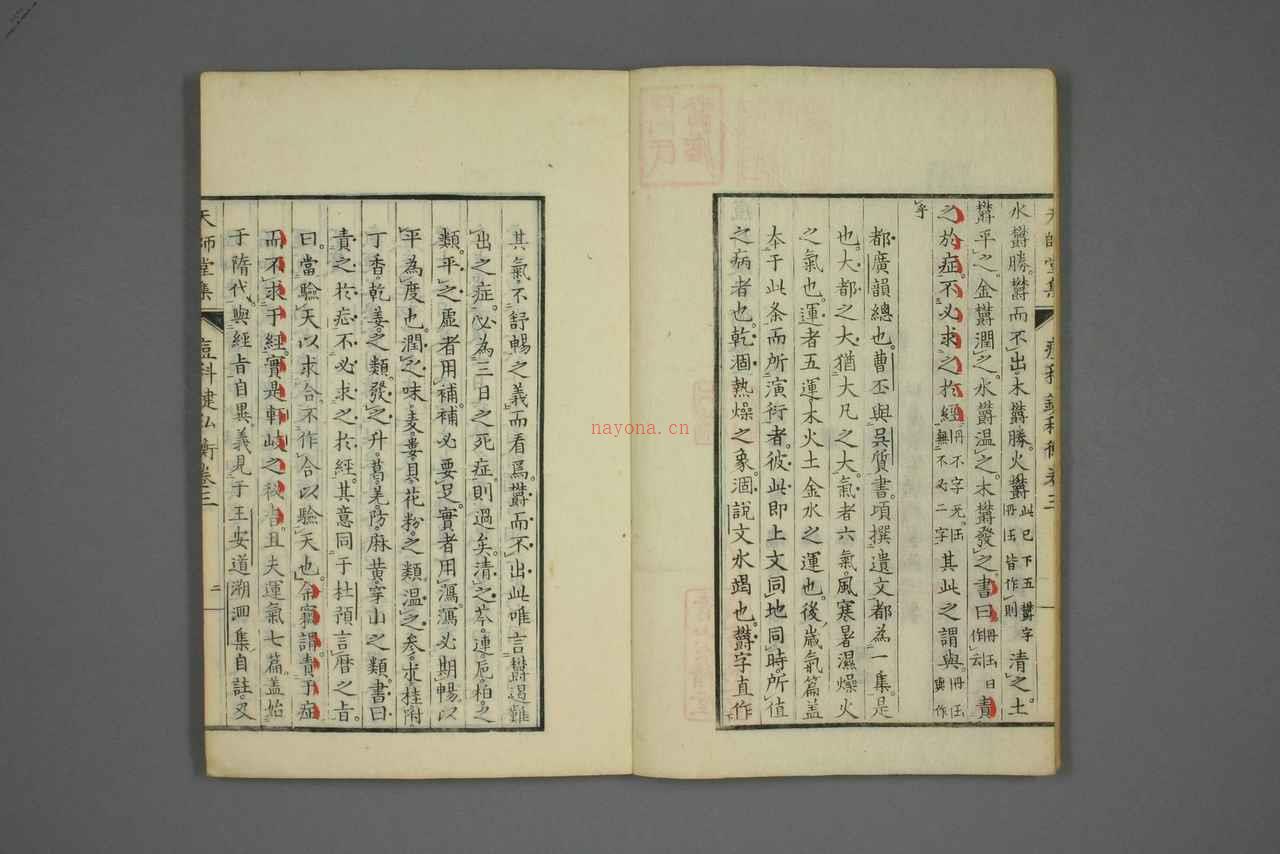 水欝勝。欝而不出。木欝勝。火欝此已下五欝字冊㕵皆作則清之。土
欝平之。金欝潤之。水欝温之。木欝發之。書曰作云責
之於症。不必求之於經。冊不字无。無不必二字其此之謂與。
乎
都廣韻總也。曹丕與吳質書。頃撰遺文都為一集。是
也。大都之大。猶大凡之大。氣者六氣。風寒暑濕燥火
之氣也。運者五運。木火土金水之運也。後歲氣篇蓋
本于此条而所演衍者。彼此即上文同地同時。所值
之病者也。乾涸熱燥之象。涸說文水竭也。欝字直作
其氣不舒暢之義而看爲。欝而不出此唯言欝遏難
出之症。必為三日之死症。則過矣。清之芩。連。巵。柏之
類。平之虚者用補。補必要足。實者用瀉。瀉必期暢。以
平為度也。潤之味。麦。蔞。貝。花粉之類。温之参。朮。桂附。
丁香。乾姜之類。發之升。葛。羌。防。麻黄。穿山之類。書曰
責之於症不必求之於經。其意同于杜預言曆之旨。
曰。當驗天以求合不作合以驗天也。余竊謂責于症
而不求于經。實是軒岐之秘旨。且夫運氣七篇。蓋始
于隋代。與經旨自異義見于王安道溯洄集自註。又
天師堂集
痘科鍵私衡卷三
二
nayona.cn